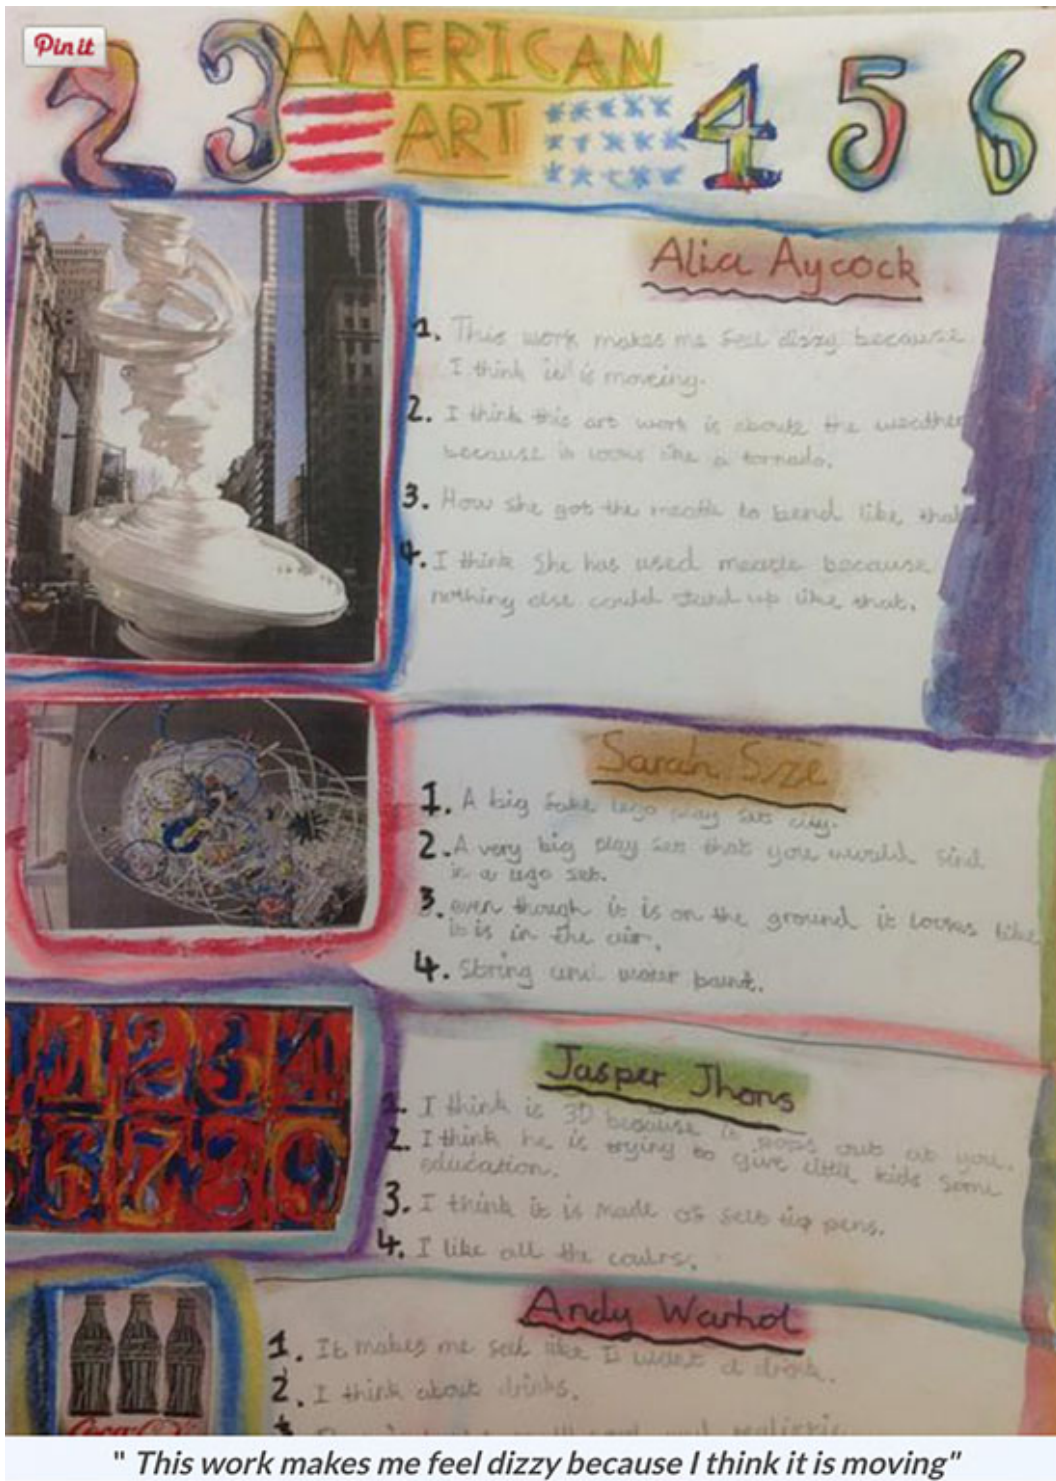 Pin it
2 3 AMERICAN 4 5 6
ART
Alice Aycock
1. This work makes me feel dizzy because
I think it is moveing.
2. I think this art work is about the weather
because it looks like a tornado.
3. How she got the meatle to bend like that
4. I think she has used meatle because
nothing else could stand up like that.
Sarah Sze
1. A big fake lego play set city.
2. A very big play set that you would find
in a lego set.
3. even though it is on the ground it looks like
it is in the air.
4. String and water paint.
1 2 3 4
6 7 8 9
Jasper Jhons
1. I think is 3D because it pops out at you.
2. I think he is trying to give little kids some
education.
3. I think it is made of felt tip pens.
4. I like all the coulrs.
Andy Warhol
1. It makes me feel like I want a drink.
2. I think about drinks.
3. and realistic
Coca-Cola
" This work makes me feel dizzy because I think it is moving"